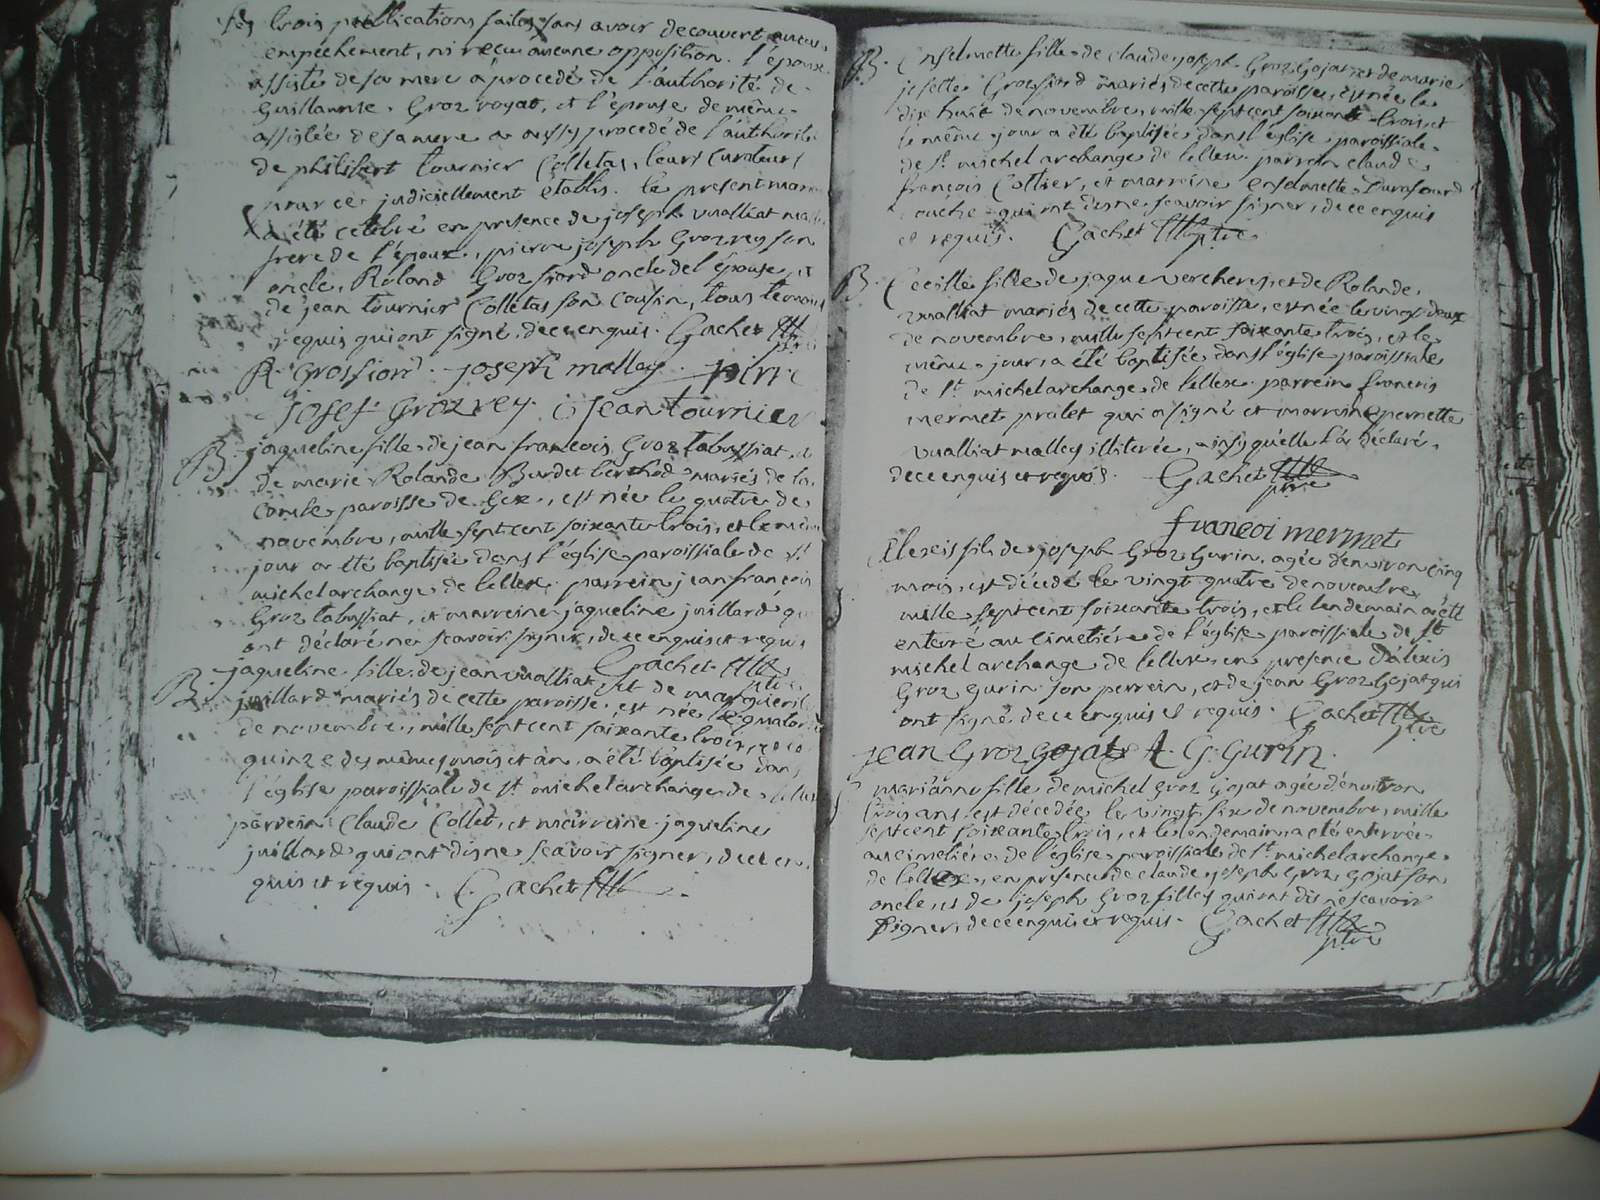 les trois publications faites sans avoir decouvert aucun
empêchement, ni reçu aucune opposition. l'époux
assisté de sa mere a procedé de l'authorité de
Guillaume Groz royat, et l'épouse de même
assistée de sa mere a aussy procedé de l'authorité
de philibert tournier Colletas, leurs curateurs
pour ce judiciellement établis. le present mar
a été celebré en presence de joseph vualliat ma
frere de l'époux, pierre joseph Groz rey son
oncle, Roland Groz fiord oncle de l'épouse, et
de jean tournier Colletas son cousin, tous temoins
requis qui ont signé. de ce enquis. Gachet
R Grosfiord. joseph malley. pirre
Josef Grozrey jean tournier
B. jaqueline fille de jean françois Groz tabussiat, et
de marie Rolande Burdet berthod mariés de la
combe paroisse de Gex, est née le quatre de
novembre, mille sept cent soixante trois, et le même
jour a été baptisée dans l'église paroissiale de st
michel archange de lellex. parrein jean françois
Groz tabussiat, et marreine jaqueline juillard qui
ont déclaré ne sçavoir signer, de ce enquis et requis
Gachet ptre
B. jaqueline fille de jean vualliat, et de marguerite
juillard mariés de cette paroisse, est née le quatorze
de novembre, mille sept cent soixante trois, et le
quinze des mêmes mois et an, a été baptisée dans
l'église paroissiale de st michel archange de lellex
parrein Claude Collet, et marreine jaqueline
juillard qui ont dis ne sçavoir signer, de ce en
quis et requis. Gachet
B. Enselmette fille de claude joseph Groz Gojat et de marie
josette Grosfiord mariés de cette paroisse, est née le
dix huit de novembre, mille sept cent soixante trois, et
le même jour a été baptisée dans l'église paroissiale
de st michel archange de lellex. parrein claude
françois Collier, et marreine enselmette Durafourd
qui ont dis ne sçavoir signer, de ce enquis
et requis. Gachet ptre
B. Cecille fille de jaque vercherin, et de Rolande
vualliat mariés de cette paroisse, est née le vingt deux
de novembre, mille sept cent soixante trois, et le
même jour, a été baptisée dans l'église paroissiale
de st michel archange de lellex. parrein francois
mermet pralet qui a signé et marreine pernette
vualliat malley illiterée, ainsi qu'elle l'a déclaré,
de ce enquis et requis. Gachet ptre
francoi mermet
Alexis fils de joseph Groz Gurin, agée d'environ cinq
mois, est décédé le vingt quatre de novembre
mille sept cent soixante trois, et le lendemain a été
enterré au cimetiére de l'église paroissiale de st
michel archange de lellex, en presence d'alexis
Groz Gurin son perrein, et de jean Groz Gojat qui
ont signé de ce enquis et requis. Gachet ptre
jean Groz gojat A. G. Gurin.
marianne fille de michel groz Gojat agée d'environ
trois ans est décedée le vingt six de novembre, mille
sept cent soixante trois, et le lendemain, a été enterrée
au cimetiére de l'église paroissiale de st michel archange
de lellex, en présence de claude joseph Groz Gojat son
oncle, et de joseph Groz filley qui ont dis ne scavoir
signer, de ce enquis et requis. Gachet ptre